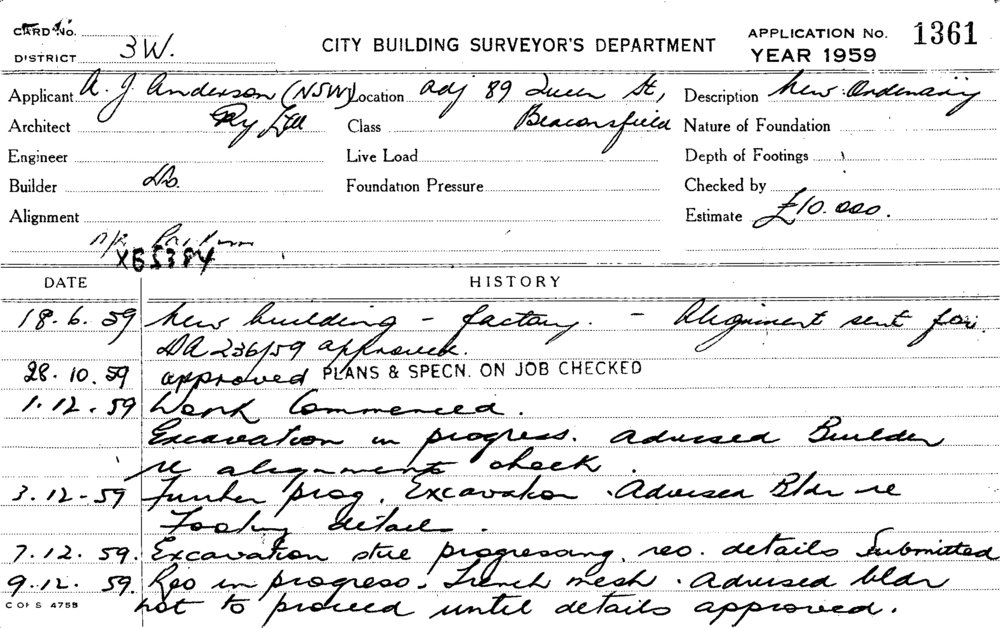 CARD No.
DISTRICT 3W.
CITY BUILDING SURVEYOR'S DEPARTMENT
APPLICATION No. 1361
YEAR 1959
Applicant A. J. Anderson (NSW) Location adj 89 Queen St, Description New Ordinary
Architect Pty Ltd Class Beaconsfield Nature of Foundation
Engineer Live Load Depth of Footings
Builder Do. Foundation Pressure Checked by
Alignment Estimate £10.000.
DATE HISTORY
18.6.59 New building - factory. - Alignment sent for.
DA 236/59 approved.
28.10.59 approved PLANS & SPECN. ON JOB CHECKED
1.12.59 Work Commenced.
Excavation in progress. advised Builder
re alignment check.
3.12-59 Further prog. Excavation. Advised Bldr re
Footing details.
7.12.59. Excavation still progressing, reo. details Submitted
9.12.59. Reo in progress. Trench mesh. advised bldr
not to proceed until details approved.
C OF S 4758